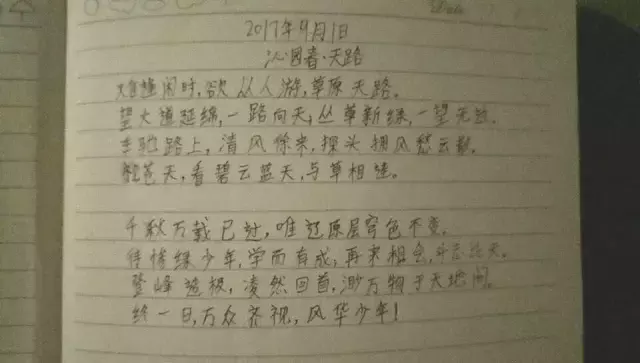 Date
2017年9月1日
沁园春·天路
难逢闲时,欲从人游,草原天路。
望大道延绵,一路向天,丛草新绿,一望无边。
车驰路上,清风徐来,探头拥风
苍天,看碧云蓝天,与草相连。
千秋万载已过,唯这原层穹色不变。
少年,学而有成,再来相会,
登峰造极,凌然回首,渺万物于天地间。
终一日,万众齐视,风华少年!